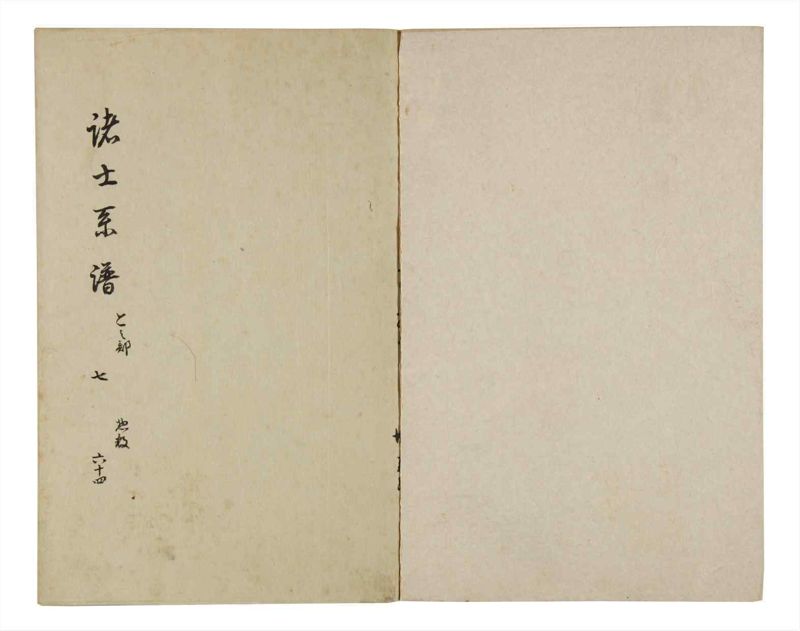 諸士系譜
と之部
七
惣数
六十四